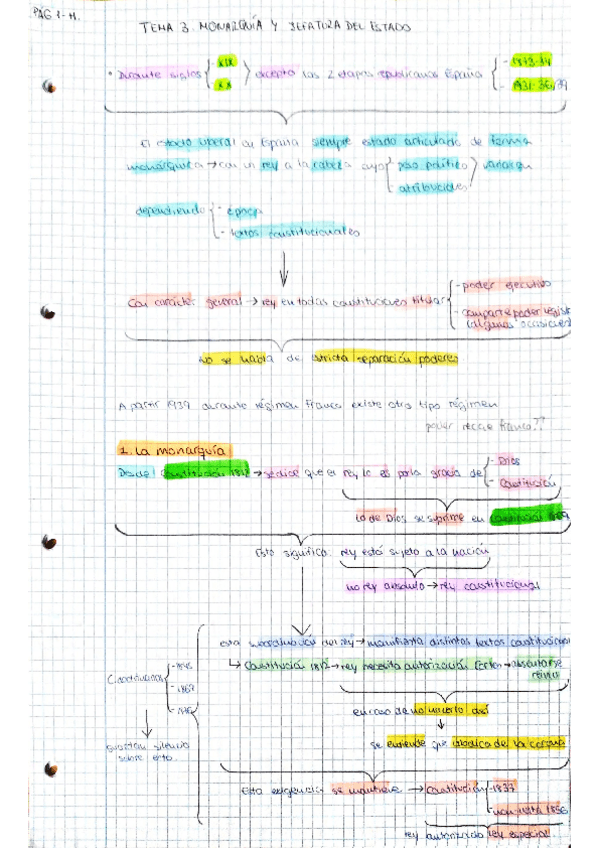 PÁG 1-M.
TEMA 3. MONARQUÍA Y JEFATURA DEL ESTADO
• Durante siglos - XIX - XX excepto las 2 etapas republicanas España - 1873-74 - 1931-36/39
El estado liberal en España siempre estado articulado de forma
monárquica → con un rey a la cabeza cuyo peso político atribuciones variaron
dependiendo - época
- textos constitucionales
Con carácter general → rey en todas constituciones titular - poder ejecutivo
- comparte poder legisl
(algunas ocasiones)
no se habla de estricta separación poderes
A partir 1939 durante régimen Franco existe otro tipo régimen
poder recae franco??
1. La monarquía
Desde Constitución 1812 → se dice que el rey lo es por la gracia de - Dios
- Constitución
lo de Dios se suprime en Constitución 1869
Esto significa rey está sujeto a la nación
no rey absoluto → rey constitucional
esta subordinación del rey → manifiesta distintos textos constitucional
Constitución 1812 → rey necesita autorización Cortes → ausentarse
reino
Constituciones - 1845
- 1869
- 1876
guardan silencio
sobre esto
en caso de no hacerlo así
se entiende que abdica de la corona
Esta exigencia se mantiene → Constitución - 1837
- non nata 1856
rey autorizado ley especial